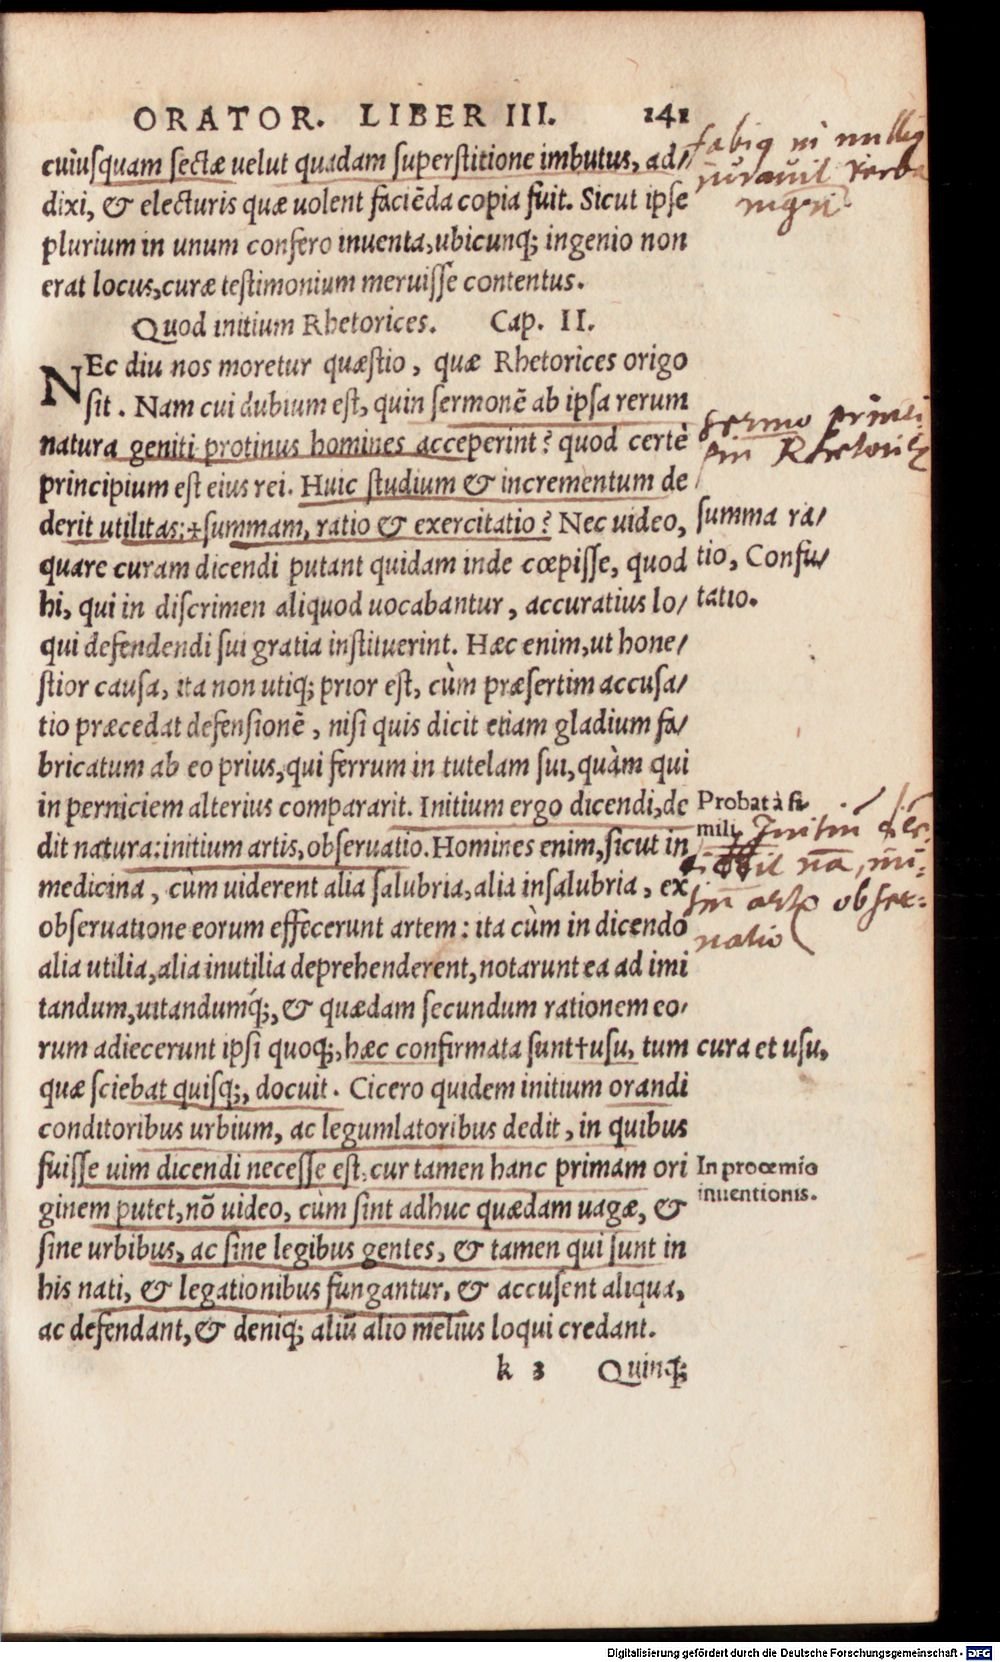 ORATOR. LIBER III. 141
cuiusquam sectæ uelut quadam superstitione imbutus, ad/
dixi, & electuris quæ uolent faciēda copia fuit. Sicut ipse
plurium in unum confero inuenta, ubicunq; ingenio non
erat locus, curæ testimonium meruisse contentus.
Quod initium Rhetorices. Cap. II.
NEc diu nos moretur quæstio, quæ Rhetorices origo
sit. Nam cui dubium est, quin sermonē ab ipsa rerum
natura geniti protinus homines acceperint? quod certè
principium est eius rei. Huic studium & incrementum de
derit utilitas: †summam, ratio & exercitatio? Nec uideo,
quare curam dicendi putant quidam inde cœpisse, quod
hi, qui in discrimen aliquod uocabantur, accuratius lo/
qui defendendi sui gratia instituerint. Hæc enim, ut hone/
stior causa, ita non utiq; prior est, cùm præsertim accusa/
tio præcedat defensionē, nisi quis dicit etiam gladium fa/
bricatum ab eo prius, qui ferrum in tutelam sui, quàm qui
in perniciem alterius compararit. Initium ergo dicendi, de
dit natura: initium artis, obseruatio. Homines enim, sicut in
medicina, cùm uiderent alia salubria, alia insalubria, ex
obseruatione eorum effecerunt artem: ita cùm in dicendo
alia utilia, alia inutilia deprehenderent, notarunt ea ad imi
tandum, uitandumq́;, & quædam secundum rationem eo/
rum adiecerunt ipsi quoq;, hæc confirmata sunt †usu, tum
quæ sciebat quisq;, docuit. Cicero quidem initium orandi
conditoribus urbium, ac legumlatoribus dedit, in quibus
fuisse uim dicendi necesse est: cur tamen hanc primam ori
ginem putet, nō uideo, cùm sint adhuc quædam uagæ, &
sine urbibus, ac sine legibus gentes, & tamen qui sunt in
his nati, & legationibus fungantur, & accusent aliqua,
ac defendant, & deniq; aliū alio melius loqui credant.
k 3 Quinq;
in nulliq
iurauit verba
sermo princi
pin Rhetoric
summa ra/
tio, Confu/
tatio.
Probat à si
mili.
Initiū
obser-
uatio
cura et usu.
In proœmio
inuentionis.
Digitalisierung gefördert durch die Deutsche Forschungsgemeinschaft - DFG